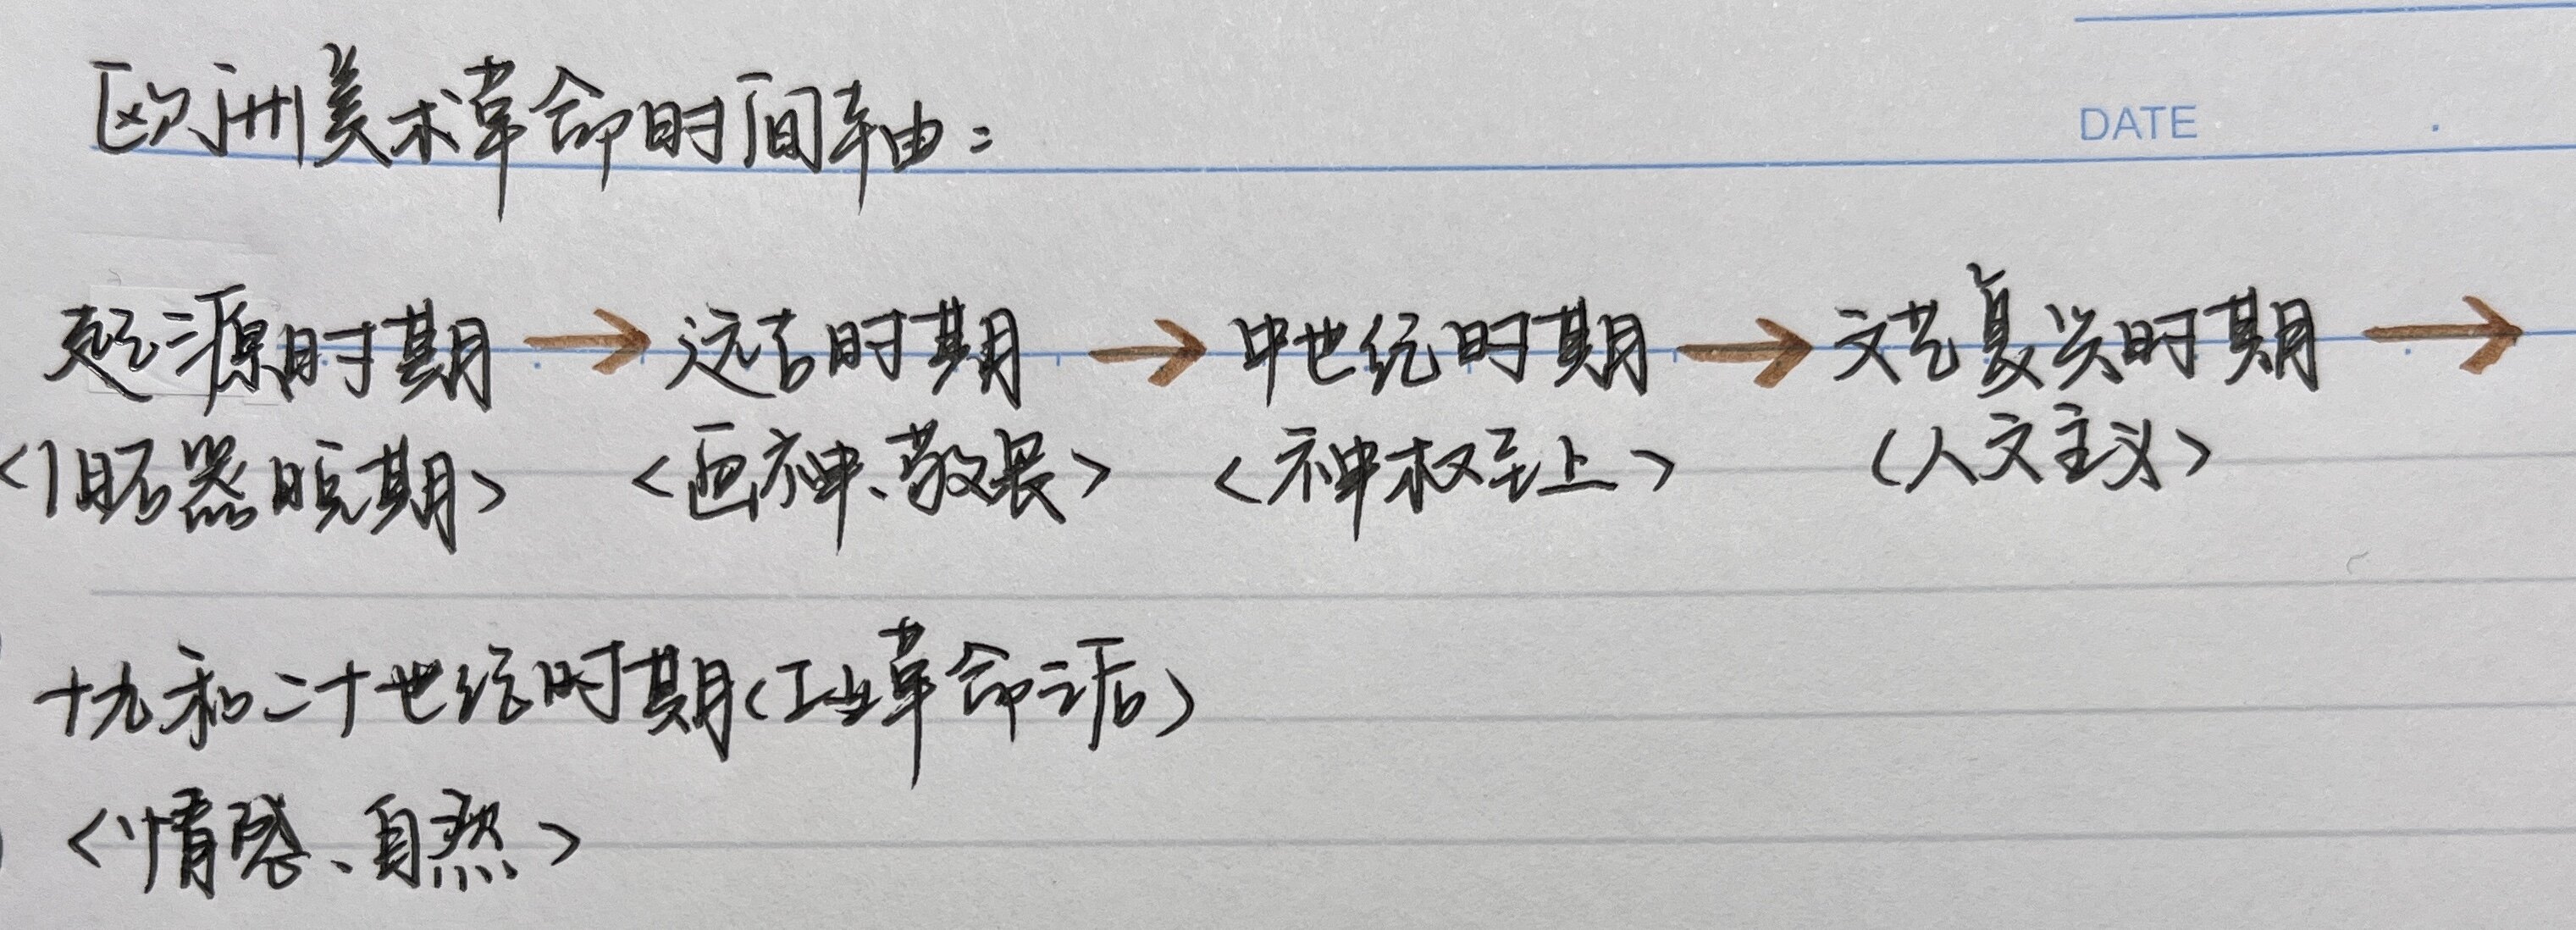 DATE
欧洲美术革命时间轴:
起源时期 → 远古时期 → 中世纪时期 → 文艺复兴时期 →
<旧石器晚期> <画神、敬畏> <神权至上> (人文主义>
十九和二十世纪时期(工业革命后)
<情感、自然>